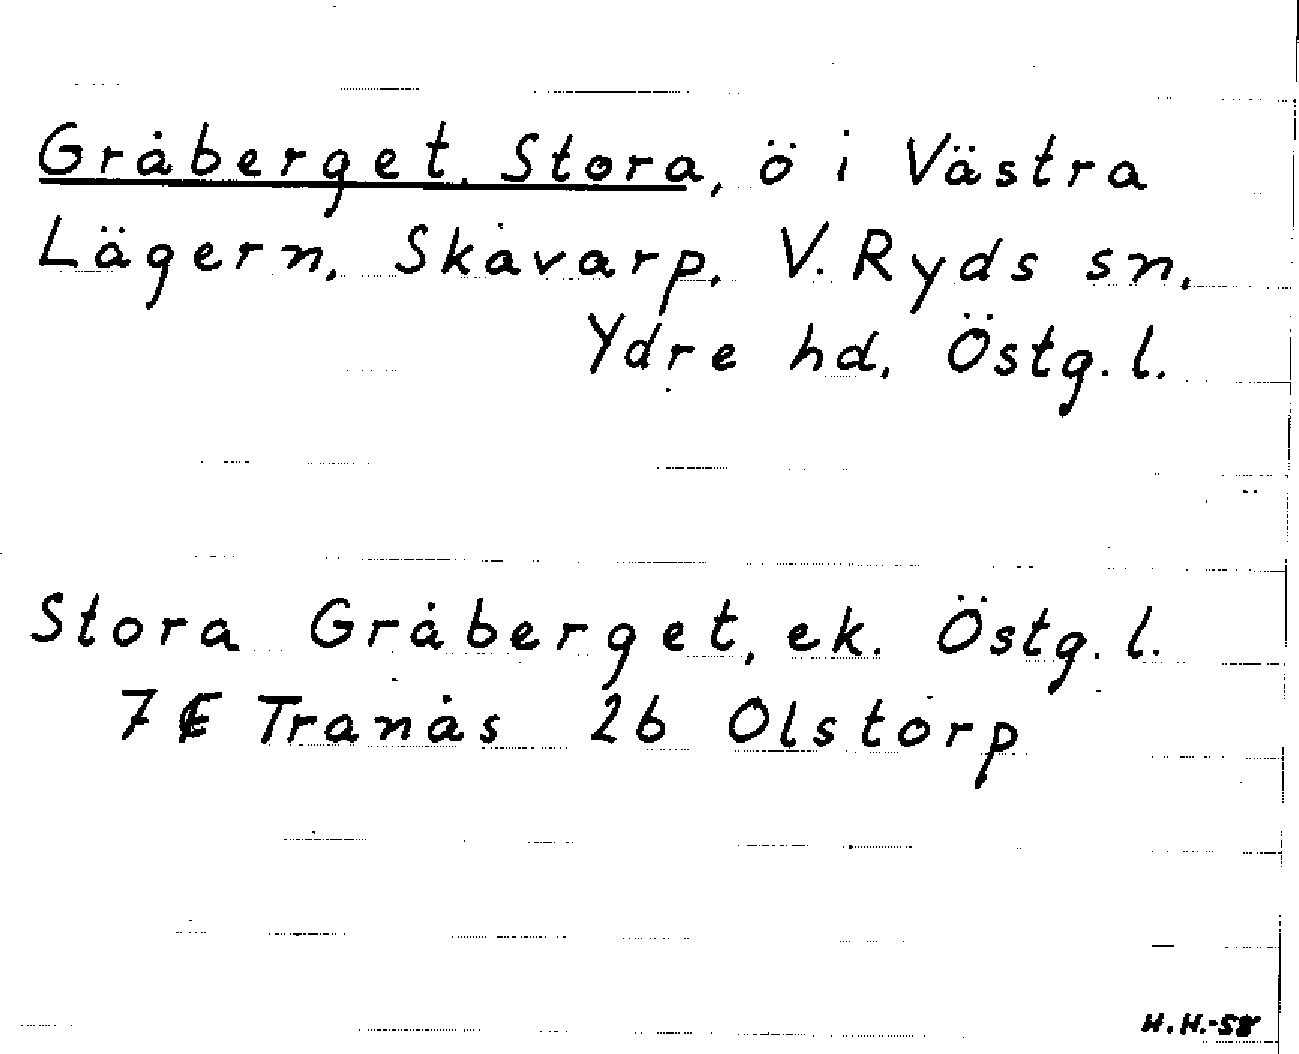 Gråberget, Stora, ö i Västra
Lägern, Skåvarp, V. Ryds sn,
Ydre hd, Östg. l.
Stora Gråberget, ek. Östg. l.
7 Tranås 2b Olstorp
H.H.-58